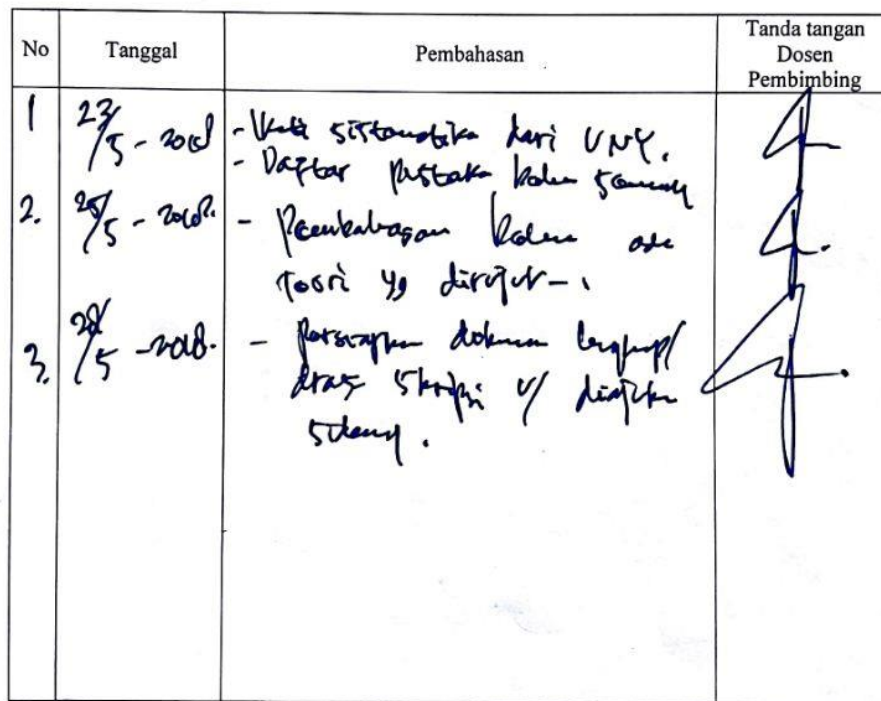 No Tanggal Pembahasan Tanda tangan
Dosen
Pembimbing
1 23/5 - 2018 - sistematika dari UNY.
- Daftar pustaka
2. 25/5 - 2018. - Pembahasan
teori yg dirujuk
3. 28/5 - 2018. - persiapkan dokumen lengkap/
draf skripsi u/ diajukan
sidang.